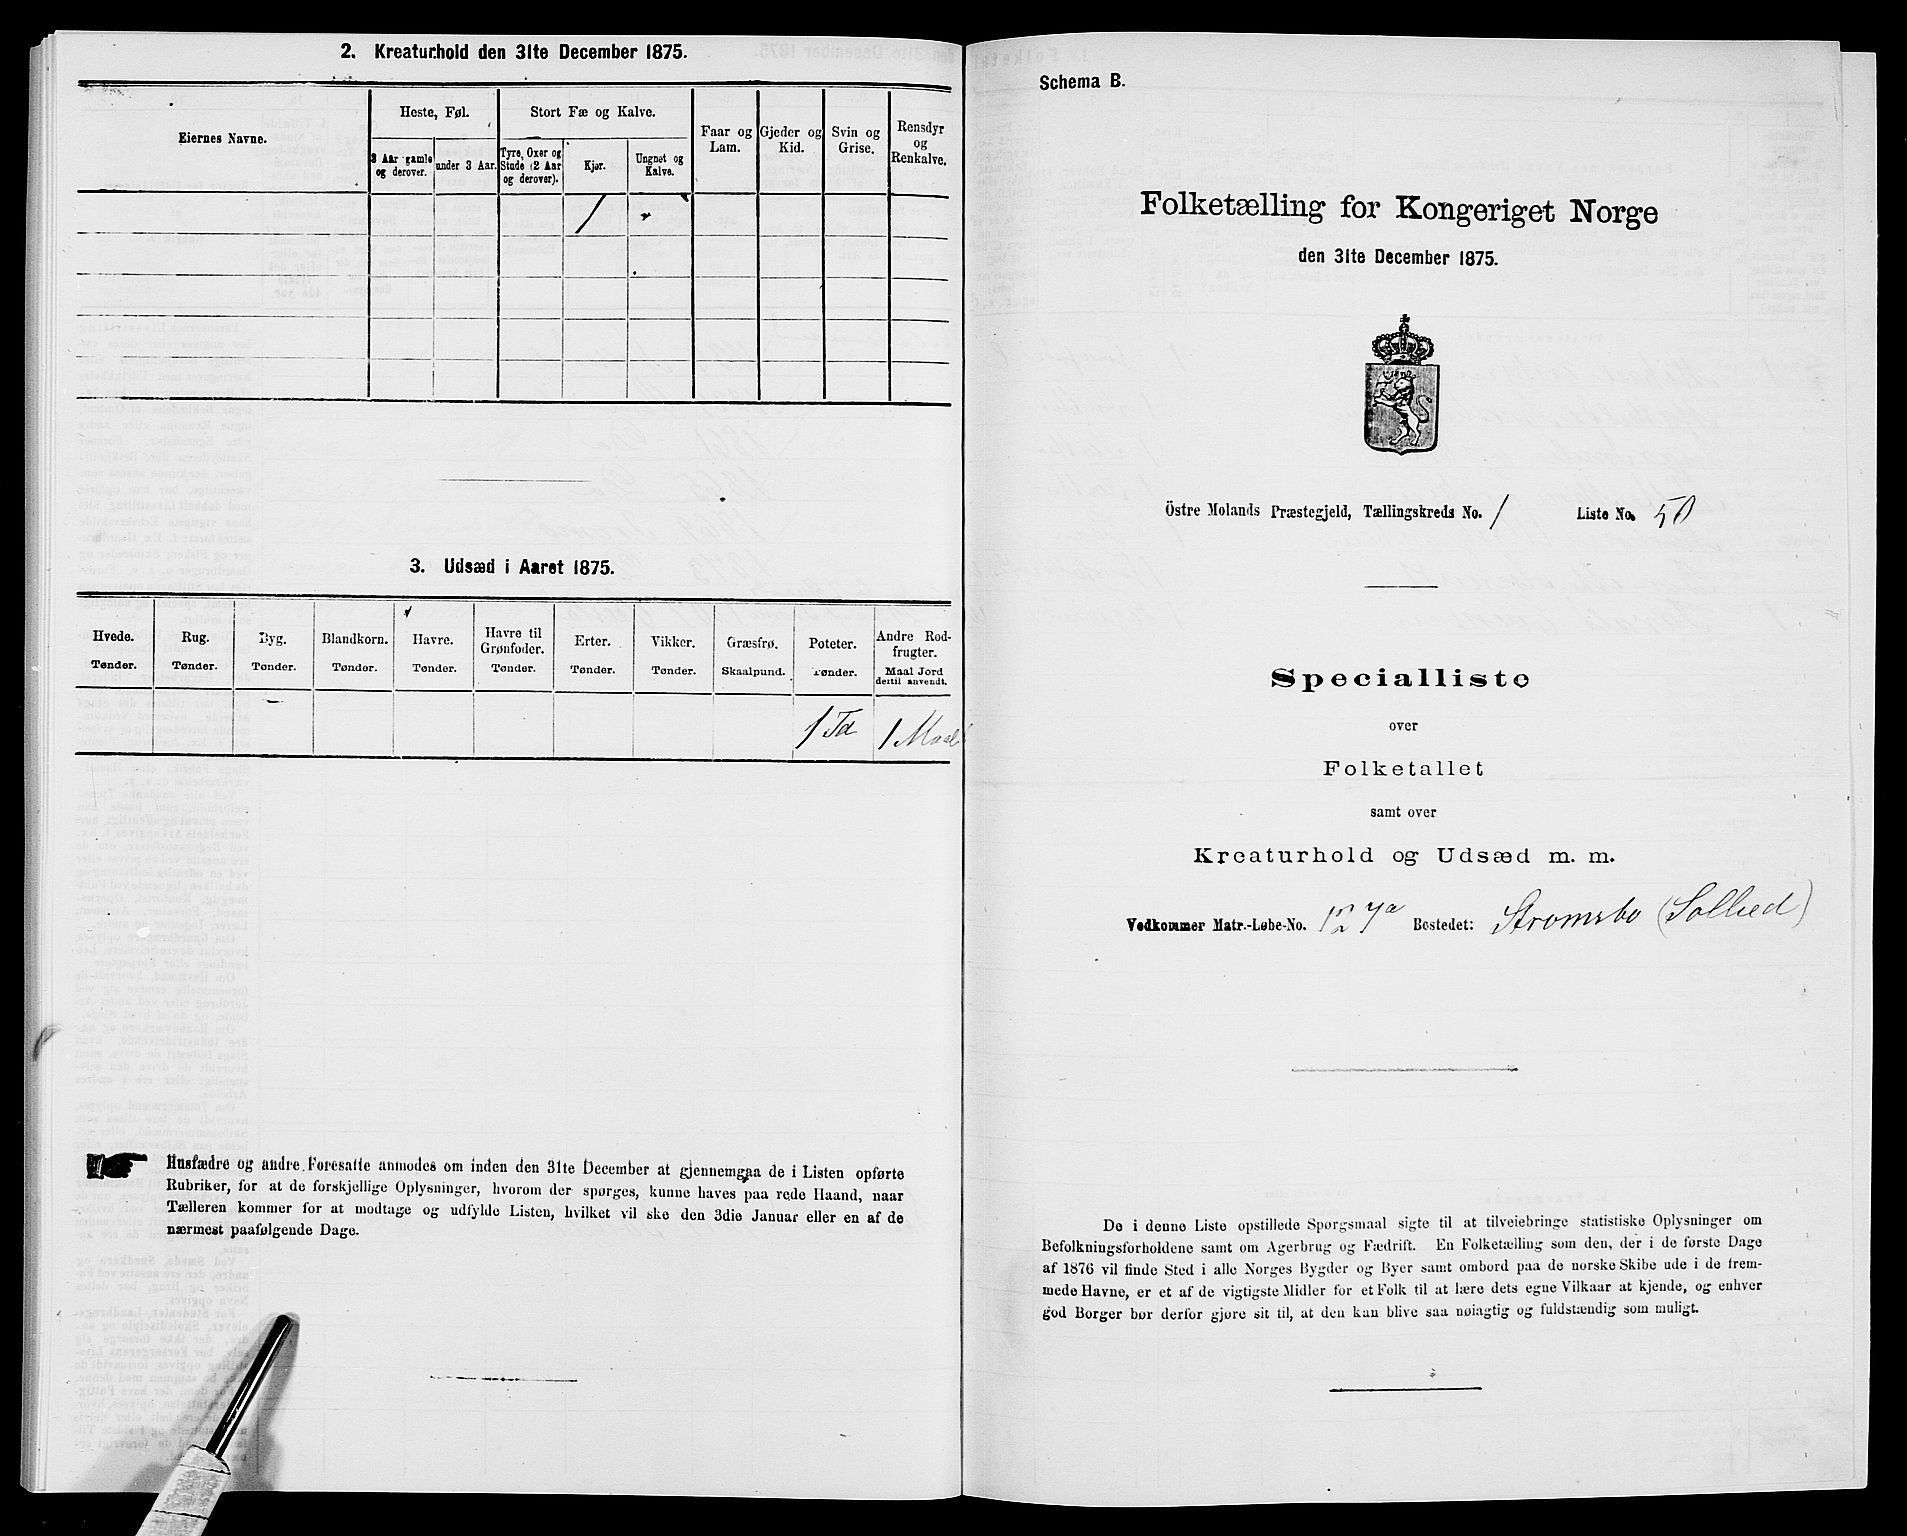 2. Kreaturhold den 31te December 1875.
Eiernes Navne.
Heste, Føl.
Stort Fæ og Kalve.
Faar og Lam.
Gjeder og Kid.
Svin og Grise.
Rensdyr og Renkalve.
3 Aar gamle og derover.
under 3 Aar.
Tyre, Oxer og Stude (2 Aar og derover).
Kjør.
Ungnøt og Kalve.
1
3. Udsæd i Aaret 1875.
Hvede. Tønder.
Rug. Tønder.
Byg. Tønder.
Blandkorn. Tønder.
Havre. Tønder.
Havre til Grønfoder. Tønder.
Erter. Tønder.
Vikker. Tønder.
Græsfrø. Skaalpund.
Poteter. Tønder.
Andre Rodfrugter. Maal Jord dertil anvendt.
1 Td 1 Maal
Husfædre og andre Foresatte anmodes om inden den 31te December at gjennemgaa de i Listen opførte
Rubriker, for at de forskjellige Oplysninger, hvorom der spørges, kunne haves paa rede Haand, naar
Tælleren kommer for at modtage og udfylde Listen, hvilket vil ske den 3die Januar eller en af de
nærmest paafølgende Dage.
Schema B.
Folketælling for Kongeriget Norge
den 31te December 1875.
Östre Molands Præstegjeld, Tællingskreds No. 1 Liste No. 50
Specialliste
over
Folketallet
samt over
Kreaturhold og Udsæd m. m.
Vedkommer Matr.-Løbe-No. 127a Bostedet: Strømsbo (Solhed)
De i denne Liste opstillede Spørgsmaal sigte til at tilveiebringe statistiske Oplysninger om
Befolkningsforholdene samt om Agerbrug og Fædrift. En Folketælling som den, der i de første Dage
af 1876 vil finde Sted i alle Norges Bygder og Byer samt ombord paa de norske Skibe ude i de frem-
mede Havne, er et af de vigtigste Midler for et Folk til at lære dets egne Vilkaar at kjende, og enhver
god Borger bør derfor gjøre sit til, at den kan blive saa nøiagtig og fuldstændig som muligt.